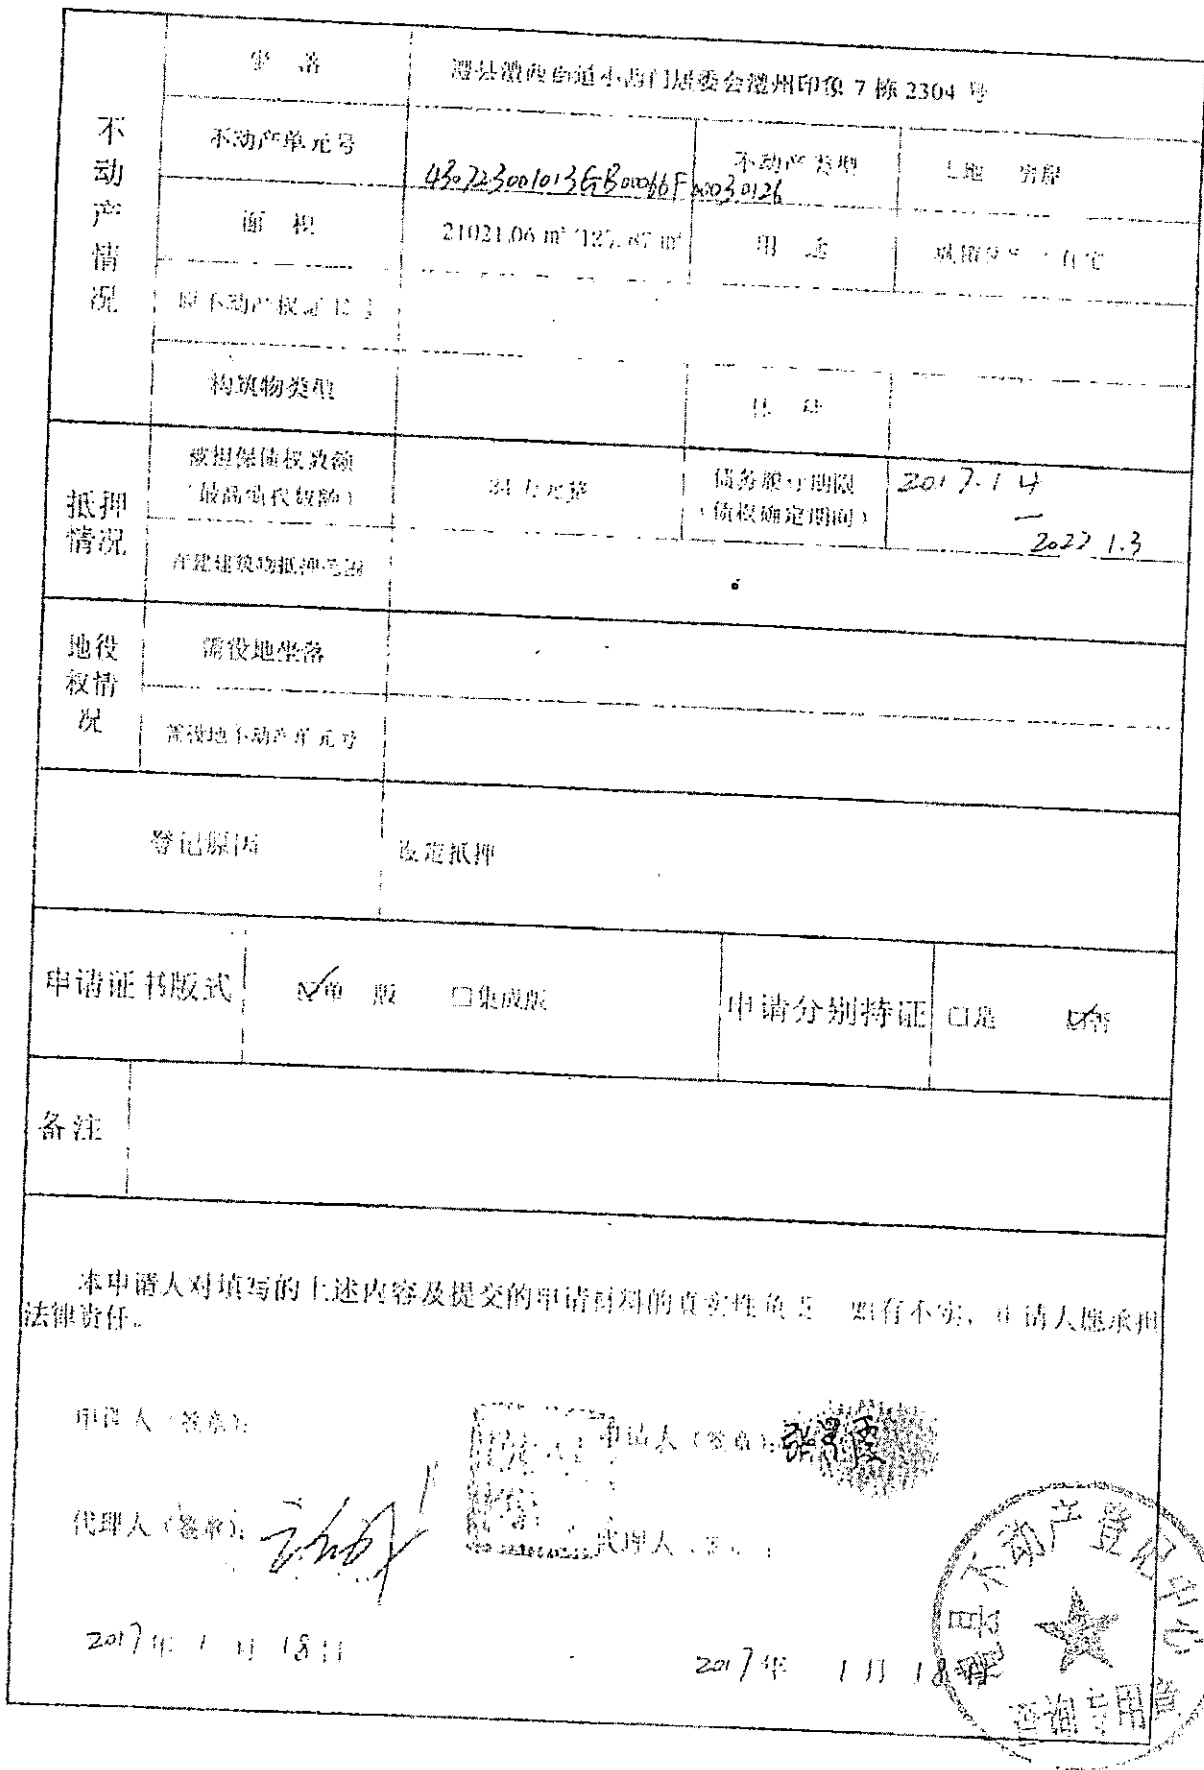 坐 落 澧县澧西街道小西门居委会澧州印象 7 栋 2304 号
不动产情况
不动产单元号 430723001013GB00066F00030126 不动产类型 土地 房屋
面 积 21021.06 m² 用 途 住宅
原不动产权证书号
构筑物类型
抵押情况
被担保债权数额
(最高债权数额)
34 万元整
债务履行期限
(债权确定期间)
2017.1 4
—
2022 1.3
在建建筑物抵押范围
地役权情况
需役地坐落
需役地不动产单元号
登记原因 设定抵押
申请证书版式 ☑单 版 □集成版 申请分别持证 □是 ☑否
备注
本申请人对填写的上述内容及提交的申请材料的真实性负 如有不实,申请人愿承担
法律责任。
申请人(签章): 申请人(签章):
代理人(签章): 代理人
2017年 1 月 18日 2017年 1月 18日
澧县不动产登记中心
查询专用章